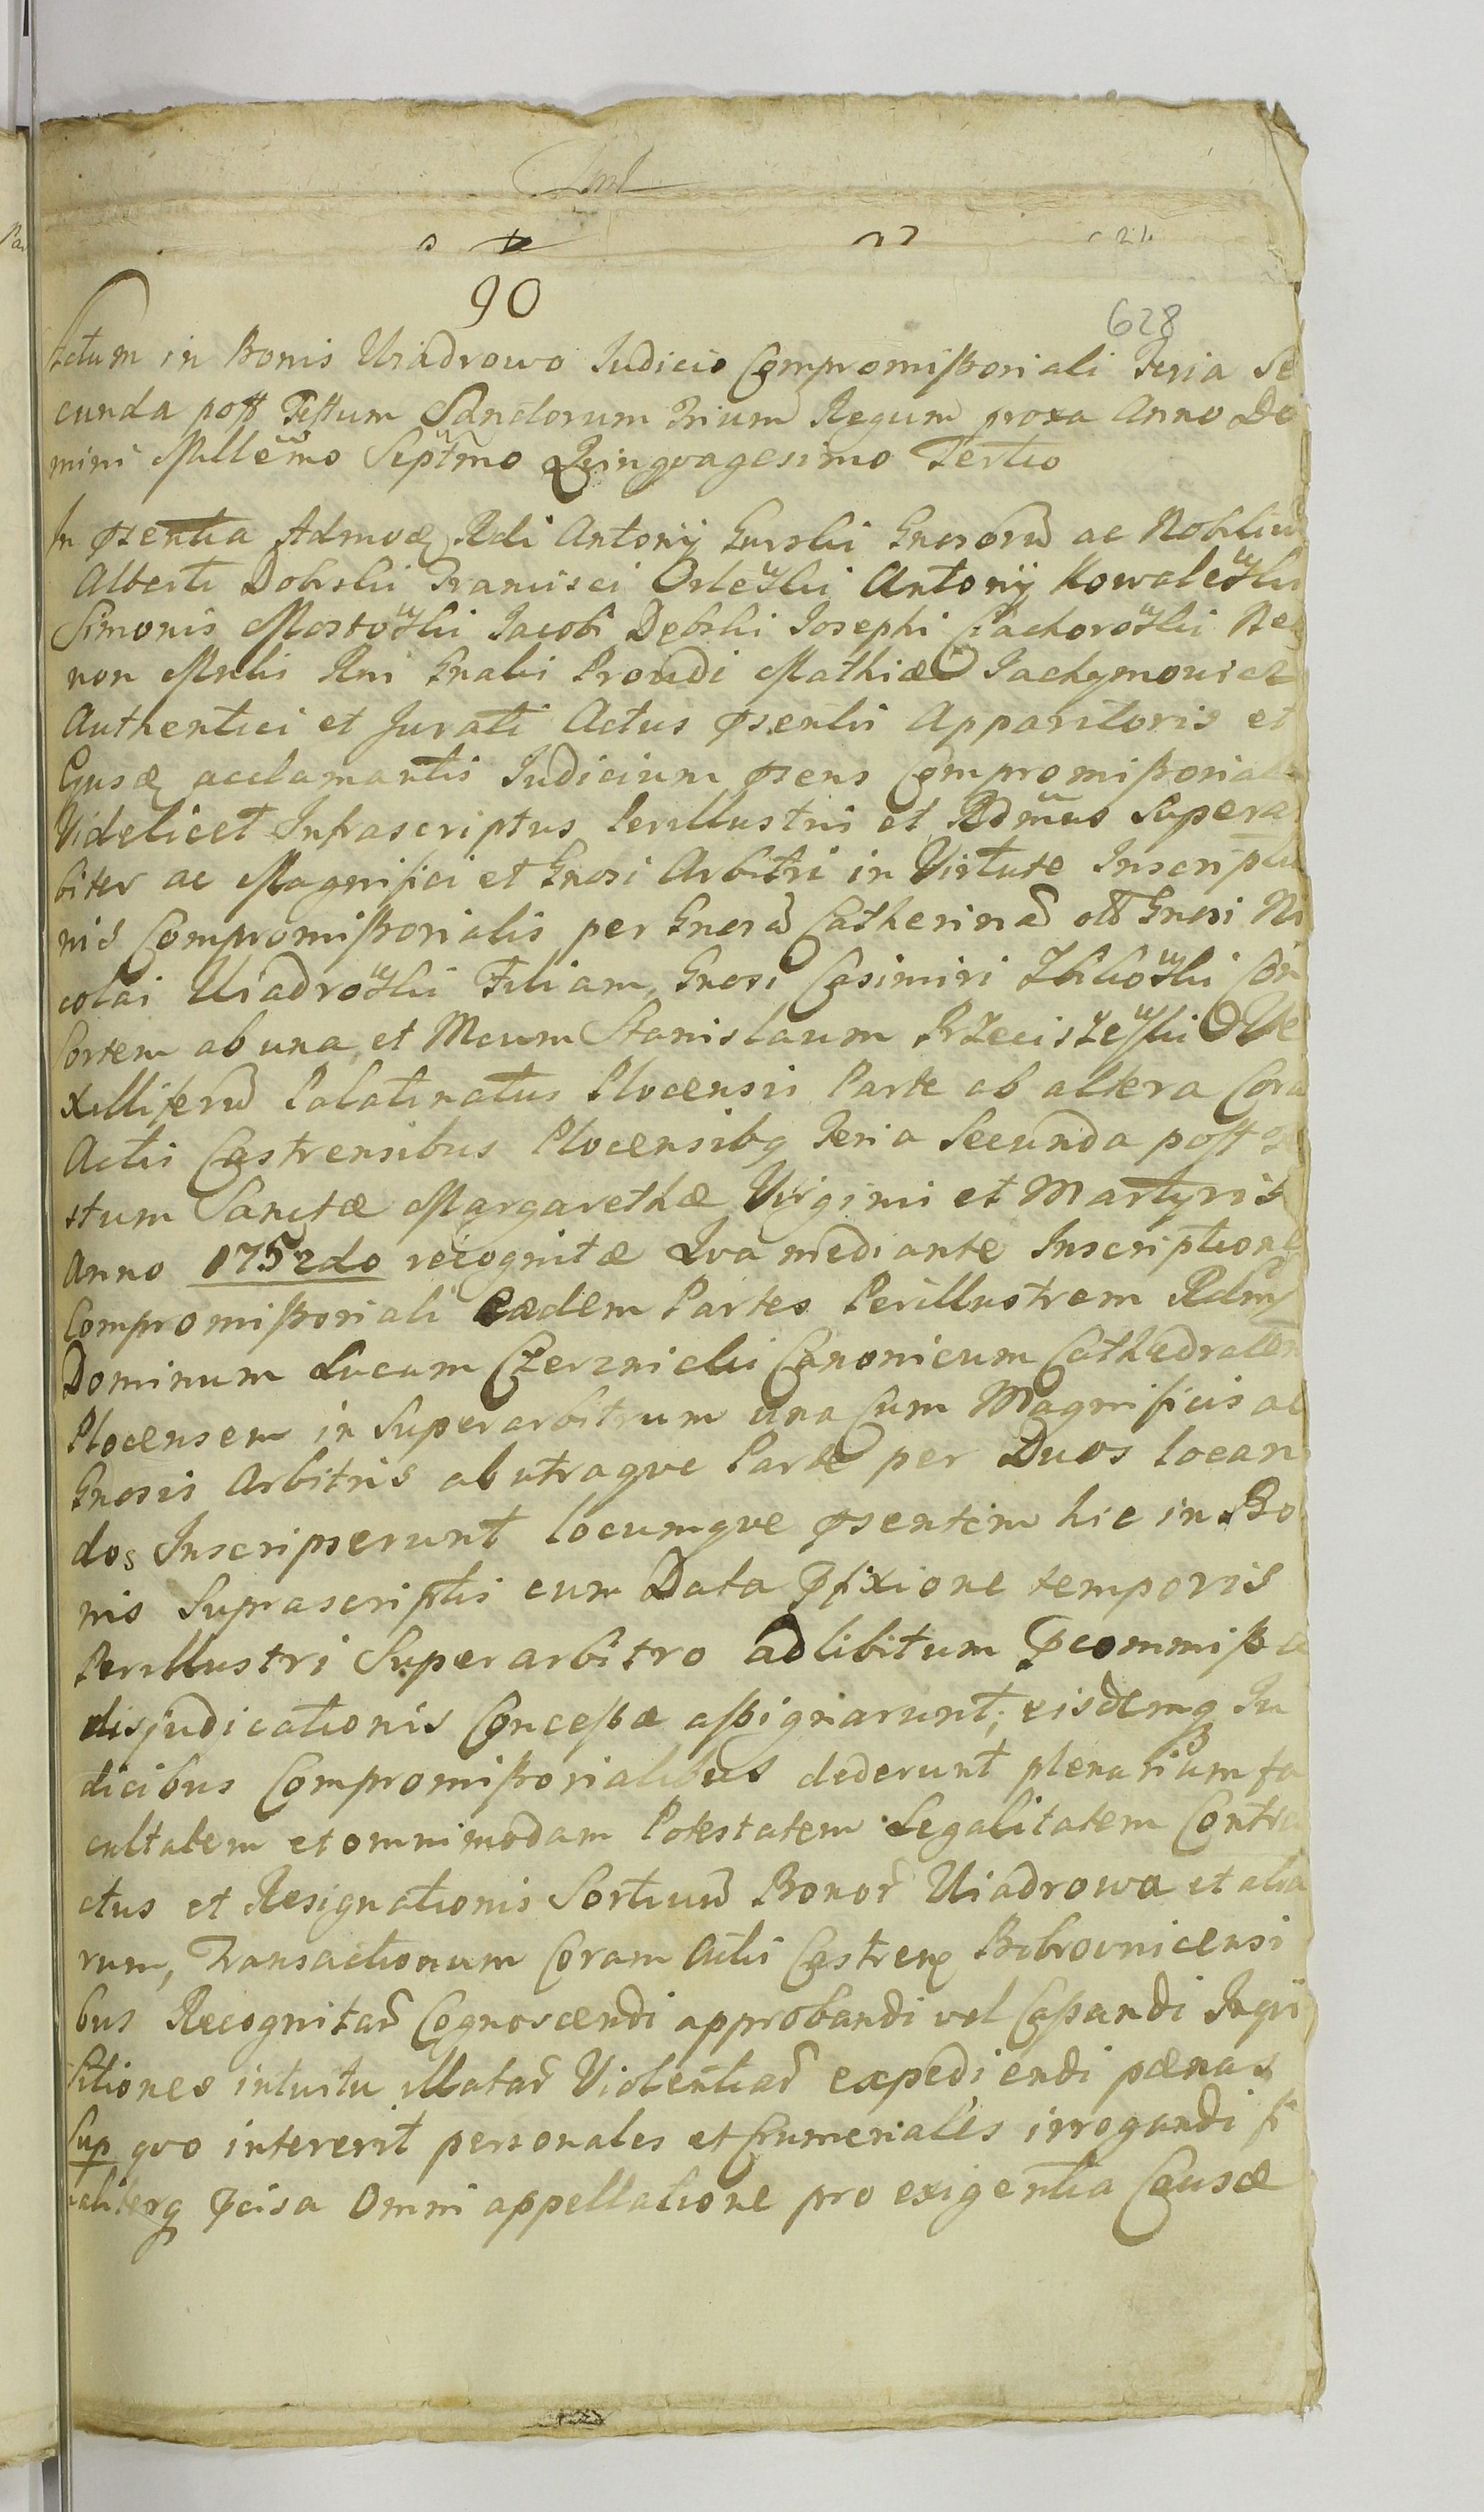 90
628
Actum in Bonis Uiadrowo Iudicio Compromißoriali Feria Se
cunda post Festum Sanctorum Trium Regum proxa Anno Do
mini Millemo Septmo Qvingvagesimo Tertio
In psentia Admodq Rdi Antonij Gurski Gnerosorū ac Nobiliū
Alberti Dobrski Francisci Orlewski Antonij Kowalewski
Simonis Mostowski Jacobi Dębski Josephi Ciachorowski Nec
non Mrlis Rni Gnalis Providi Mathiæ Jachymowicz
Authentici et Jurati Actus psentis Apparitoris et
Ejusq acclamantis Iudicium psens Compromißoriale
Videlicet Infrascriptus Perillustris et Rdmus Supera
biter ac Magnifici et Gnosi Arbitri in Virtute Inscriptio
nis Compromißorialis per Gnosā Catherinā olī Gnosi Ni
colai Uiadrowski Filiam, Gnosi Casimiri Zbikowski Con
sortem ab una, et Mcum Stanislaum Przeciszewski Ve
xilliferū Palatinatus Plocensis Parte ab altera Corā
Actis Castrensibus Plocensibq Feria Secunda post Fe
stum Sanctæ Margarethæ Virginis et Martyris
Anno 1752do recognitæ Qva mediante Inscriptione
Compromißoriali eædem Partes Perillustrem Rdm
Dominum Lucam Czerznicki Canonicum Cathedralem
Plocensem in Superarbitrum una cum Magnificis ac
Gnosis Arbitris ab utraqve Parte per Duos locan
dos Inscripserunt locumqve psentem hic in Bo
nis Suprascriptis cum Data pfixione temporis
Perillustri Superarbitro ad libitum pcommißæ
disjudicationis Conceßæ aßignarunt; eisdemq Iu
dicibus Compromißorialibus dederunt plenariam fa
cultatem et omnimodam Potestatem Legalitatem Contra
ctus et Resignationis Sortiuū Bonor Uiadrowa et alia
rum, Transactionum Coram Actis Castren Bobrovnicensi
bus Recognitar Cognoscendi approbandi vel Caßandi Inqvi
sitiones intuitu illatar Violentiar expediendi pænas
Sup qvo intererit personales et Crumeriales irrogandi fi
naliterq pcisa Omni appellatione pro exigentia Causæ